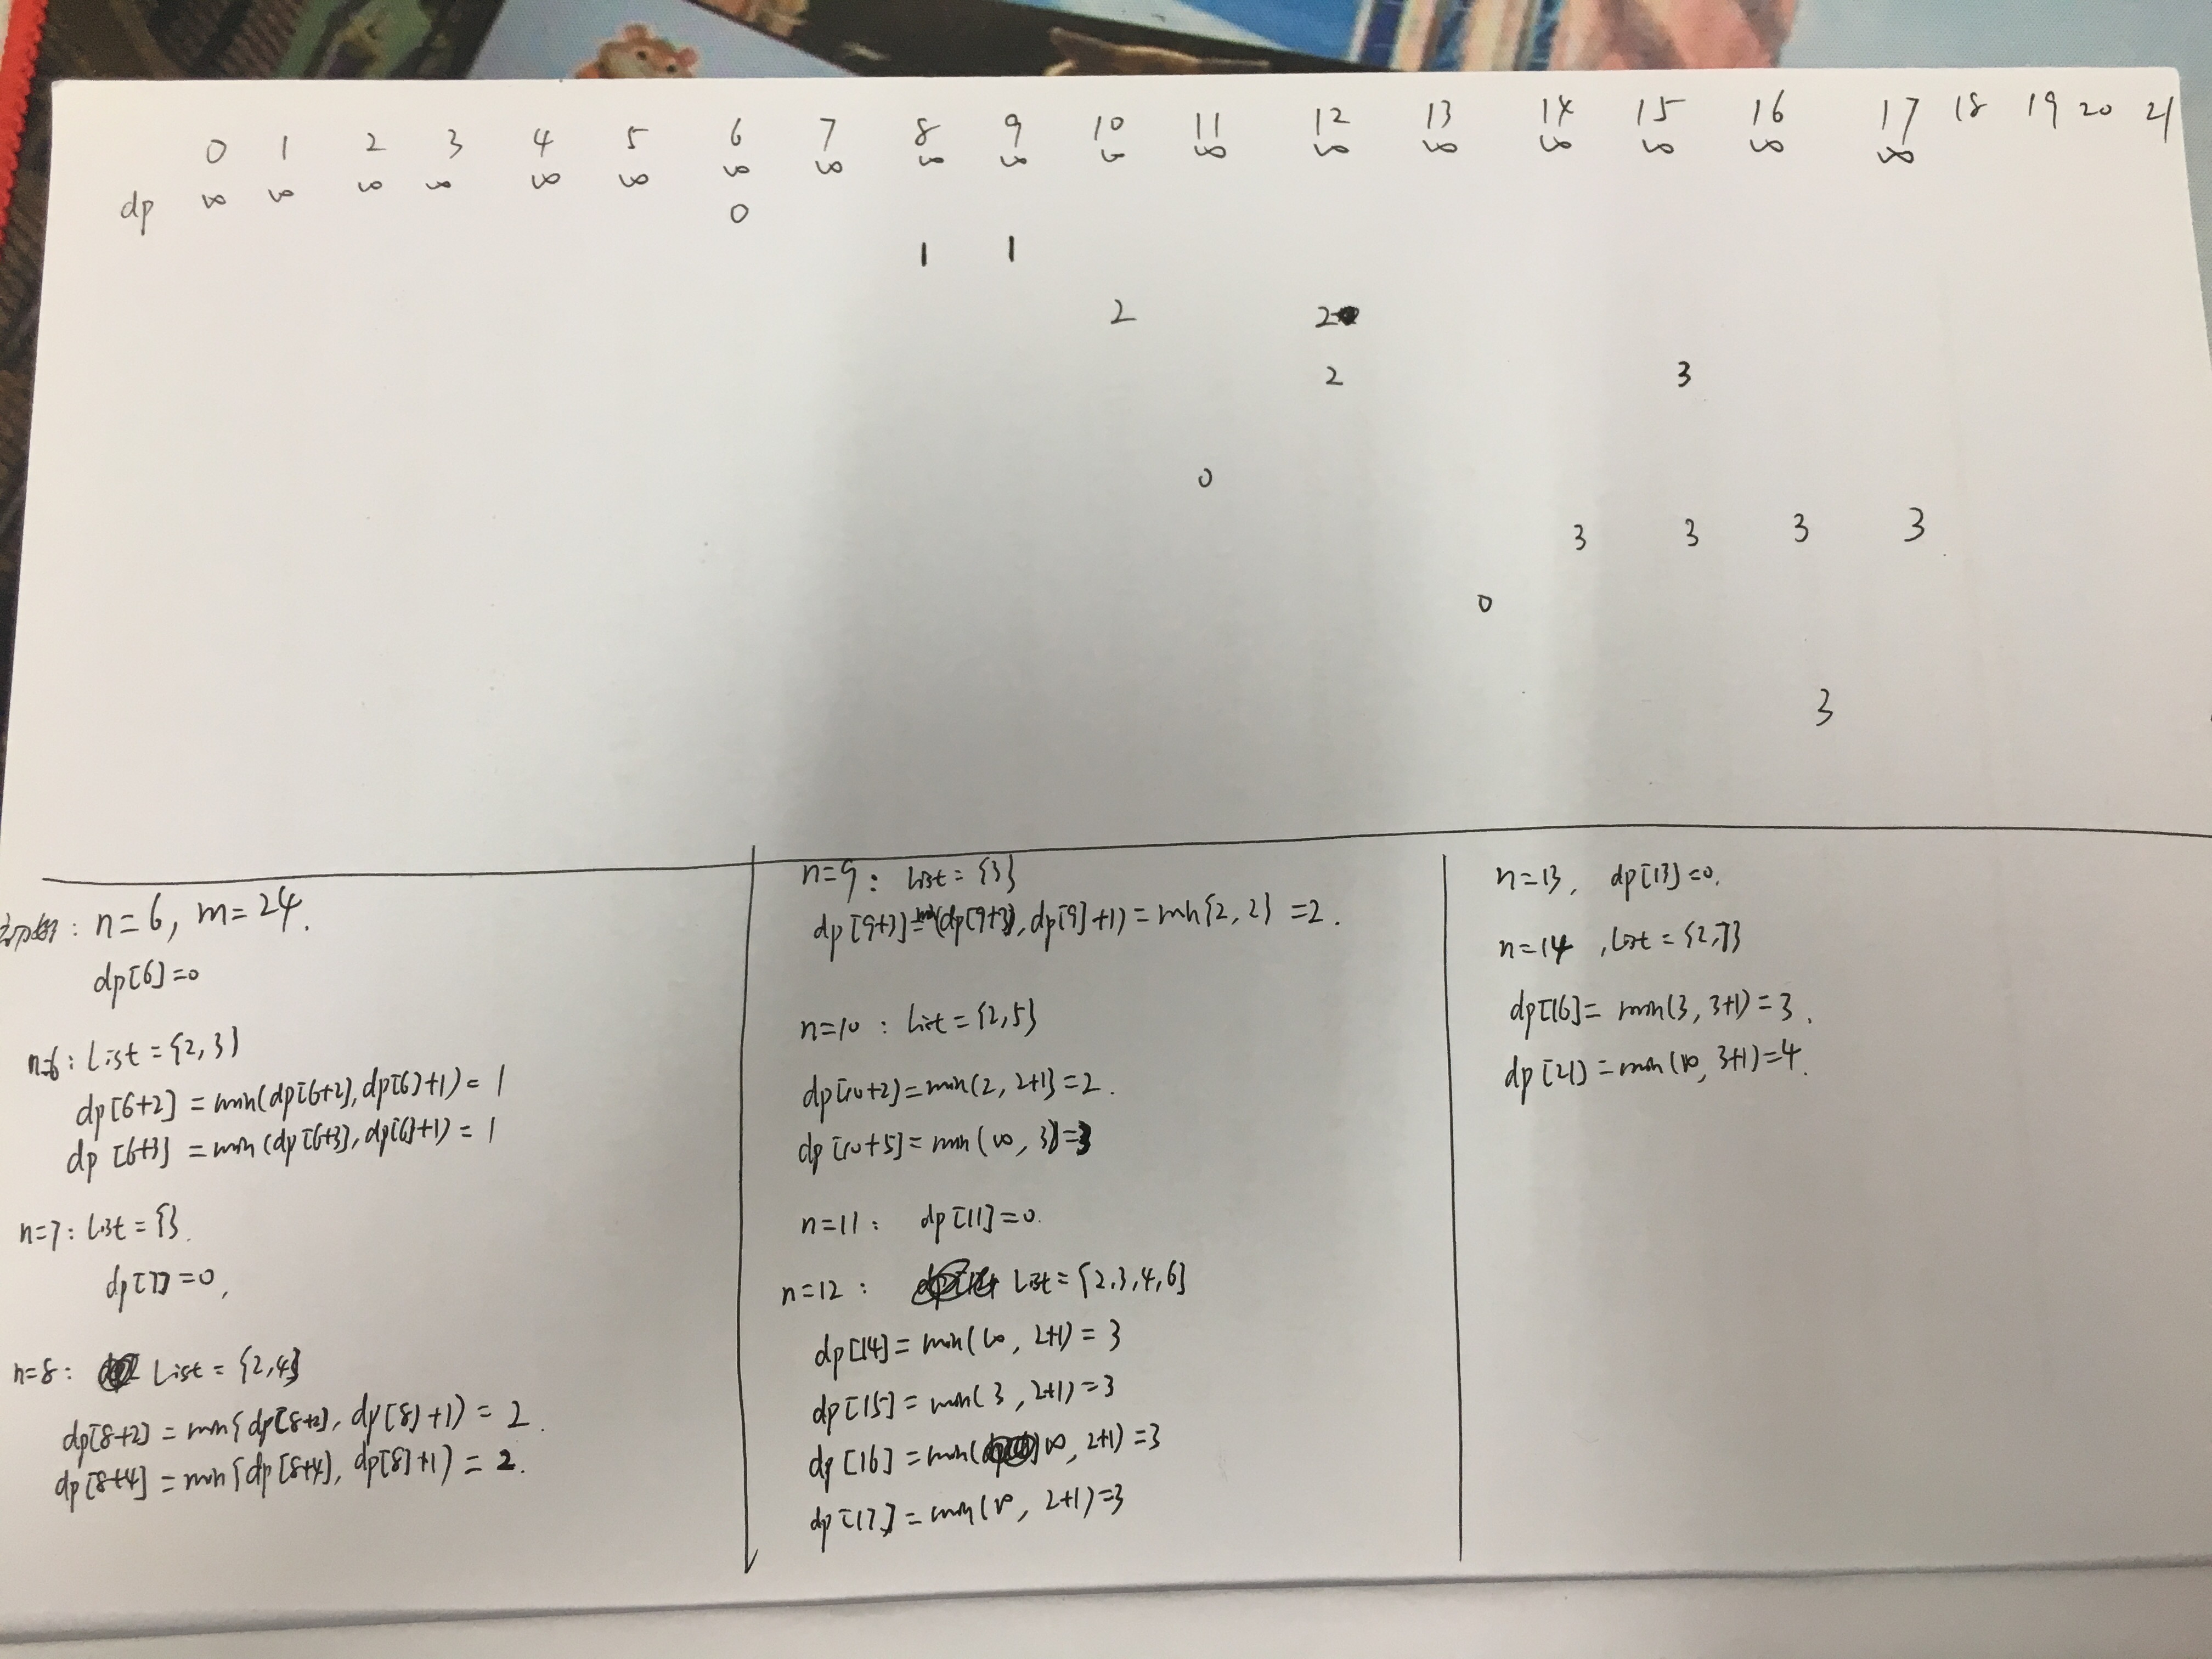 0 1 2 3 4 5 6 7 8 9 10 11 12 13 14 15 16 17 18 19 20 21
dp ∞ ∞ ∞ ∞ ∞ ∞ ∞ ∞ ∞ ∞ ∞ ∞ ∞ ∞ ∞ ∞ ∞ ∞
0
1 1
2 2
2 3
0
3 3 3 3
0
3
: n=6, m=24.
dp[6]=0
n=6: List={2,3}
dp[6+2]=min(dp[6+2],dp[6]+1)=1
dp[6+3]=min(dp[6+3],dp[6]+1)=1
n=7: List={}.
dp[7]=0,
n=8: List={2,4}
dp[8+2]=min{dp[8+2],dp[8]+1)=2.
dp[8+4]=min{dp[8+4],dp[8]+1)=2.
n=9: List={3}
dp[9+3]=min(dp[9+3],dp[9]+1)=min{2,2}=2.
n=10: List={2,5}
dp[10+2]=min(2,2+1}=2.
dp[10+5]=min(∞,3)=3
n=11: dp[11]=0.
n=12: List={2,3,4,6}
dp[14]=min(∞,2+1)=3
dp[15]=min(3,2+1)=3
dp[16]=min(∞,2+1)=3
dp[17]=min(∞,2+1)=3
n=13, dp[13]=0.
n=14, List={2,7}
dp[16]=min(3,3+1)=3.
dp[21]=min(∞,3+1)=4.